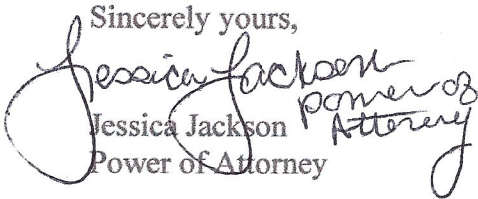 Sincerely yours,
Jessica Jackson
Power of
Attorney
Jessica Jackson
Power of Attorney